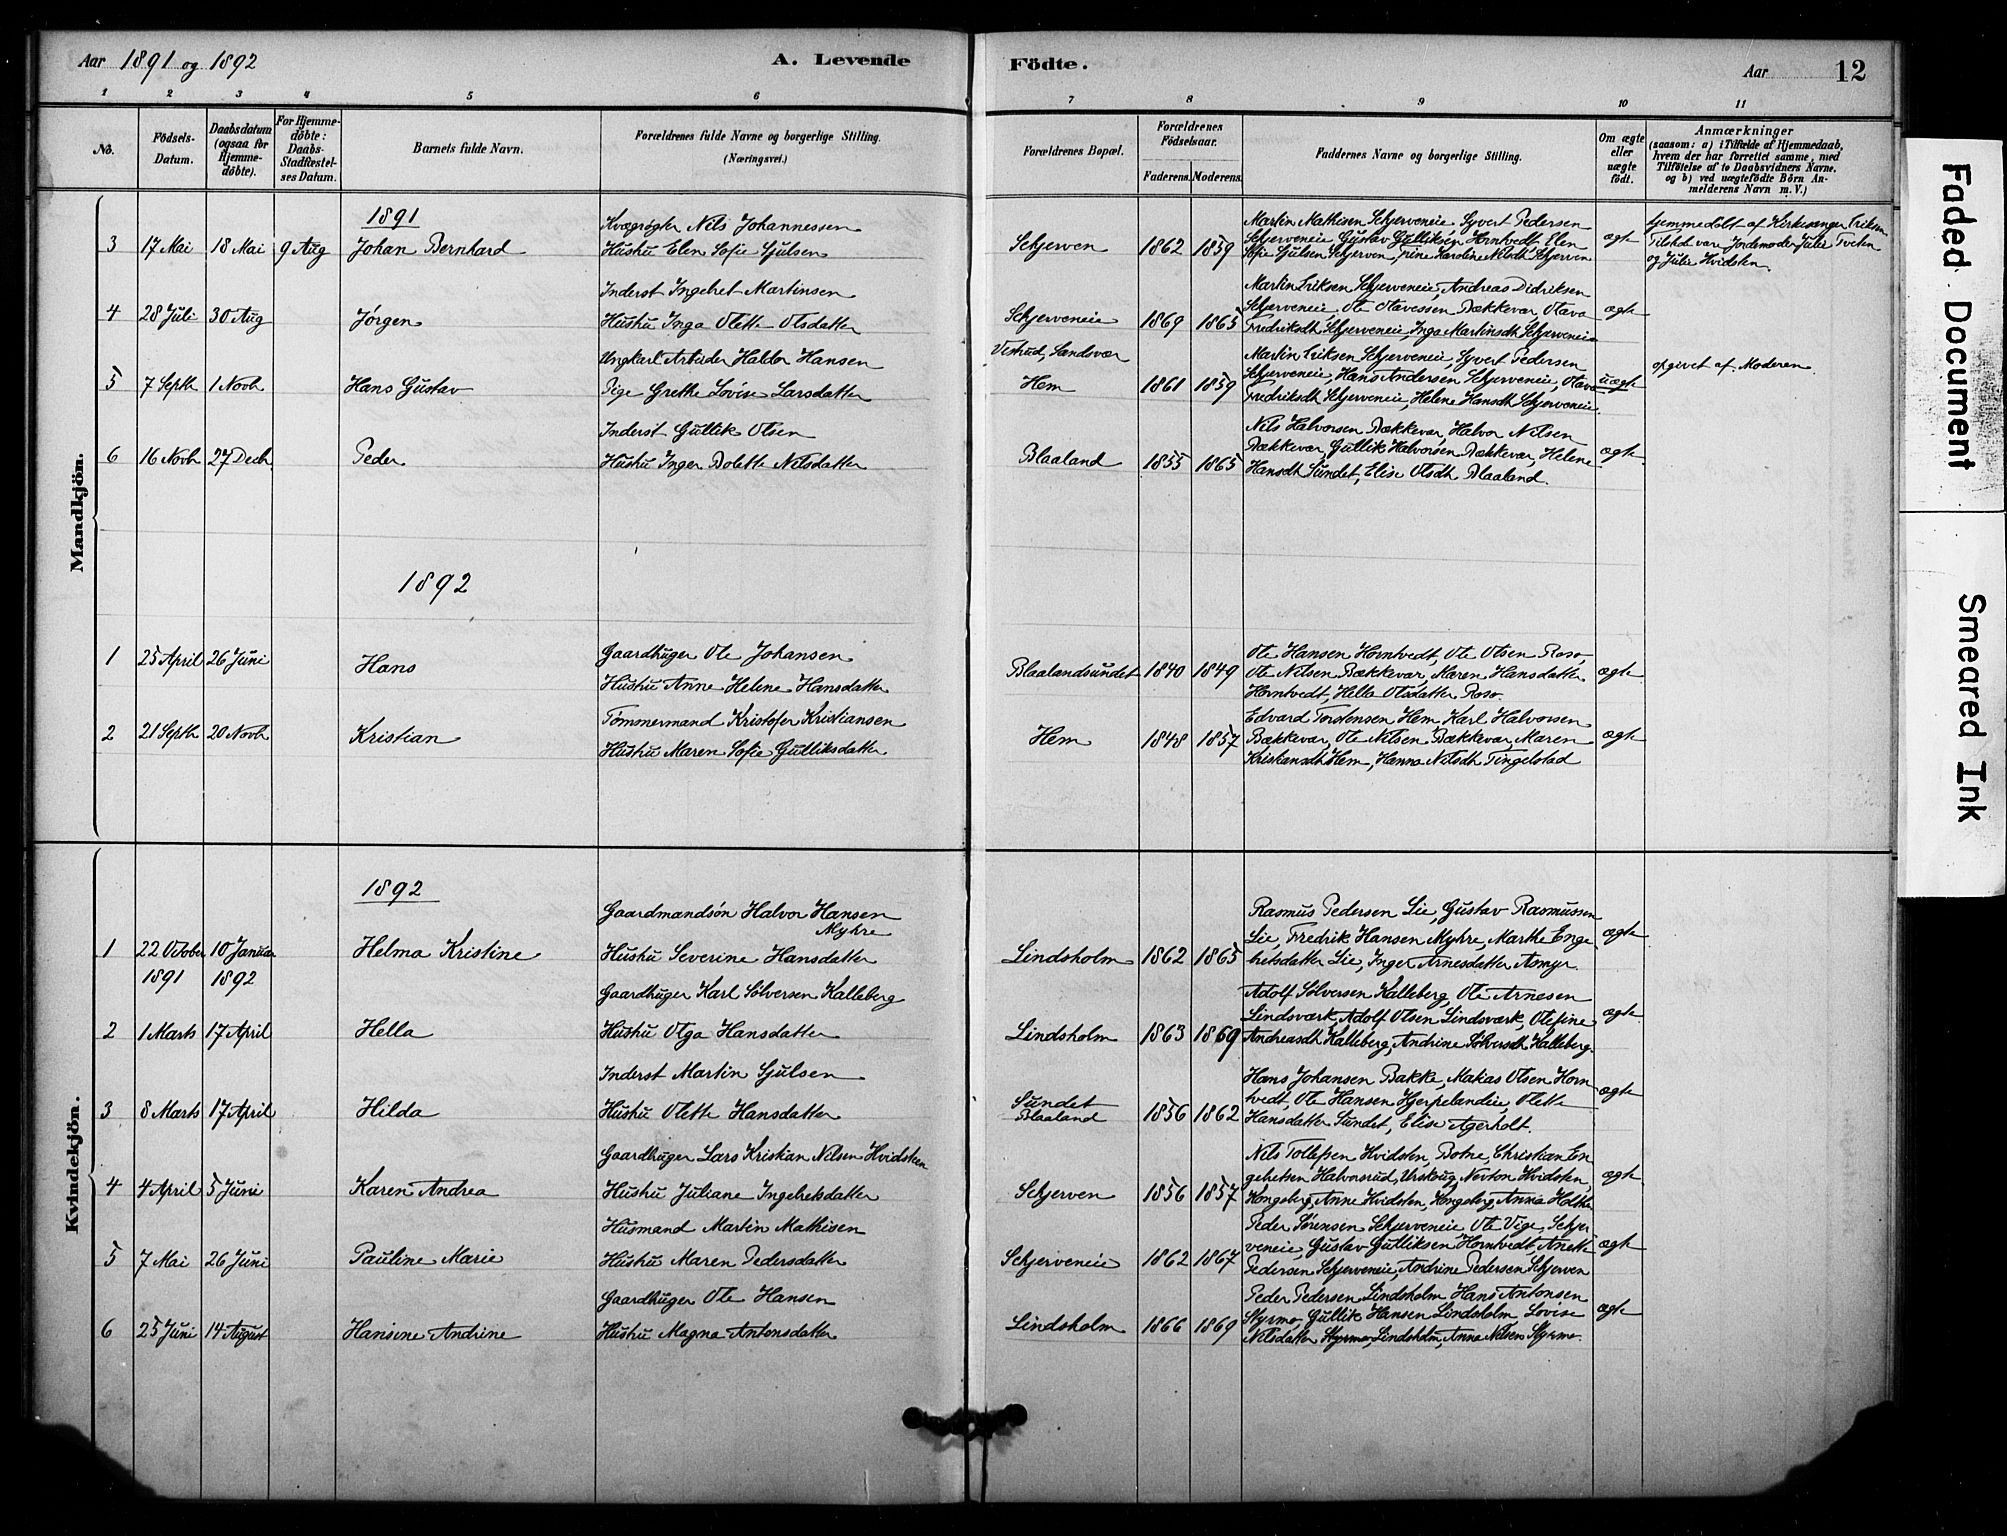 Aar 1891 og 1892
A. Levende Födte.
Aar 12
1 2 3 4 5 6 7 8 9 10 11
No.
Födsels-Datum.
Daabsdatum (ogsaa for Hjemme-döbte).
For Hjemme-döbte: Daabs-Stadfæstel-ses Datum.
Barnets fulde Navn.
Forældrenes fulde Navne og borgerlige Stilling.
(Næringsvei.)
Forældrenes Bopæl.
Forældrenes Födselsaar.
Faderens. Moderens.
Faddernes Navne og borgerlige Stilling.
Om ægte eller uægte födt.
Anmærkninger
(saasom: a) i Tilfælde af Hjemmedaab,
hvem der har forrettet samme, med
Tilföielse af to Daabsvidners Navne,
og b) ved uægtefödte Börn An-
melderens Navn m. V.)
Mandkjön.
1891
3 17 Mai 18 Mai 9 Aug Johan Bernhard
Kvægrøgter Nils Johannessen
Hustru Elen Sofie Sjulsen
Schjerven 1862 1859
Martin Mathisen Schjerveneie, Syvert Pedersen
Schjerveneie Gustav Gulliksen Horntvedt Elen
Sofie Sjulsen Schjerven, Trine Karoline Nilsdtr Schjerven
ægte
hjemmedøbt af Kirkesanger Eriksen
Tilsted vare Jordemoder Julie Tveten
og Julie Hvidsten.
4 28 Juli 30 Aug Jørgen
Inderst Ingebret Martinsen
Hustru Inga Olette Olsdatter
Schjerveneie 1869 1865
Martin Eriksen Schjerveneie, Andreas Didriksen
Schjerveneie, Ole Olavessen Bækkevar, Olava
Fredriksdtr Schjerveneie, Inga Martinsdtr Schjerveneie
ægte
5 7 Septbr 1 Novbr Hans Gustav
Ungkarl Arbeider Haldor Hansen
Pige Grethe Lovise Larsdatter
Vestrud, Sandsvær
Hem 1861 1859
Martin Eriksen Schjerveneie, Syvert Pedersen
Schjerveneie, Hans Andersen Schjerveneie, Olava
Fredriksdtr Schjerveneie, Helene Hansdtr Schjerveneie
uægte
opgivet af Moderen.
6 16 Novbr 27 Decbr Peder
Inderst Gullik Olsen
Hustru Inger Bolette Nilsdatter
Blaaland 1855 1865
Nils Halvorsen Bækkevar, Halvor Nilsen
Bækkevar, Gullik Halvorsen Bækkevar, Helene
Hansdtr Sundet, Elise Olsdtr Blaaland.
ægte
1892
1 25 April 26 Juni Hans
Gaardbruger Ole Johansen
Hustru Anne Helene Hansdatter
Blaalandsundet 1840 1849
Ole Hansen Horntvedt, Ole Olsen Roso,
Ole Nilsen Bækkevar, Maren Hansdatter
Horntvedt, Hella Olsdatter Roso
ægte
2 21 Septbr 20 Novbr Kristian
Tømmermand Kristofer Kristiansen
Hustru Maren Sofie Gulliksdatter
Hem 1848 1857
Edvard Torstensen Hem, Karl Halvorsen
Bækkevar, Ole Nilsen Bækkevar, Maren
Kristiansdtr Hem, Hanna Nilsdtr Tingelstad
ægte
Kvindekjön.
1892
1 22 October 1891 10 Januar 1892 Helma Kristine
Gaardmandsøn Halvor Hansen Myhre
Hustru Severine Hansdatter
Lindsholm 1862 1865
Rasmus Pedersen Lie, Gustav Rasmussen
Lie, Fredrik Hansen Myhre, Marthe Enge
bretsdatter Lie, Inger Arnesdatter Asmyr.
ægte
2 1 Marts 17 April Hella
Gaardbruger Karl Sølversen Kalleberg
Hustru Olga Hansdatter
Lindsholm 1863 1869
Adolf Sølversen Kalleberg, Ole Arnesen
Lindsværk, Adolf Olsen Lindsværk, Olefine
Andreasdtr Kalleberg, Andrine Sølversdtr Kalleberg.
ægte
3 8 Marts 17 April Hilda
Inderst Martin Sjulsen
Hustru Olette Hansdatter
Sundet
Blaaland 1856 1862
Hans Johansen Bakke, Matias Olsen Horn
tvedt, Ole Hansen Hjerpelandeie, Olette
Hansdatter Sundet, Elise Agerholt.
ægte
4 4 April 5 Juni Karen Andrea
Gaardbruger Lars Kristian Nilsen Hvidsteen
Hustru Juliane Ingebretsdatter
Schjerven 1856 1857
Nils Tollefsen Hvidsten, Botne, Christian En
gebretsen Halvorsrud, Urskoug, Hvidsten,
Kongsberg, Anne Hvidsten, Kongsberg, Anna Holthe
ægte
5 7 Mai 26 Juni Pauline Marie
Husmand Martin Mathisen
Hustru Maren Pedersdatter
Schjerveneie 1862 1867
Peder Sørensen Schjerveneie Ole Vige, Schjer
veneie, Gustav Gulliksen Horntvedt, Anette
Pedersen Schjerveneie, Andrine Pedersen Schjerven
ægte
6 25 Juni 14 August Hansine Andrine
Gaardbruger Ole Hansen
Hustru Magna Antonsdatter
Lindsholm 1866 1869
Peder Pedersen Lindsholm Hans Antonsen
Styrmo, Gullik Hansen Lindsholm Lovise
Nilsdatter Styrmo, Lindsholm, Anne Nilsen Styrmo.
ægte
Faded Document
Smeared Ink